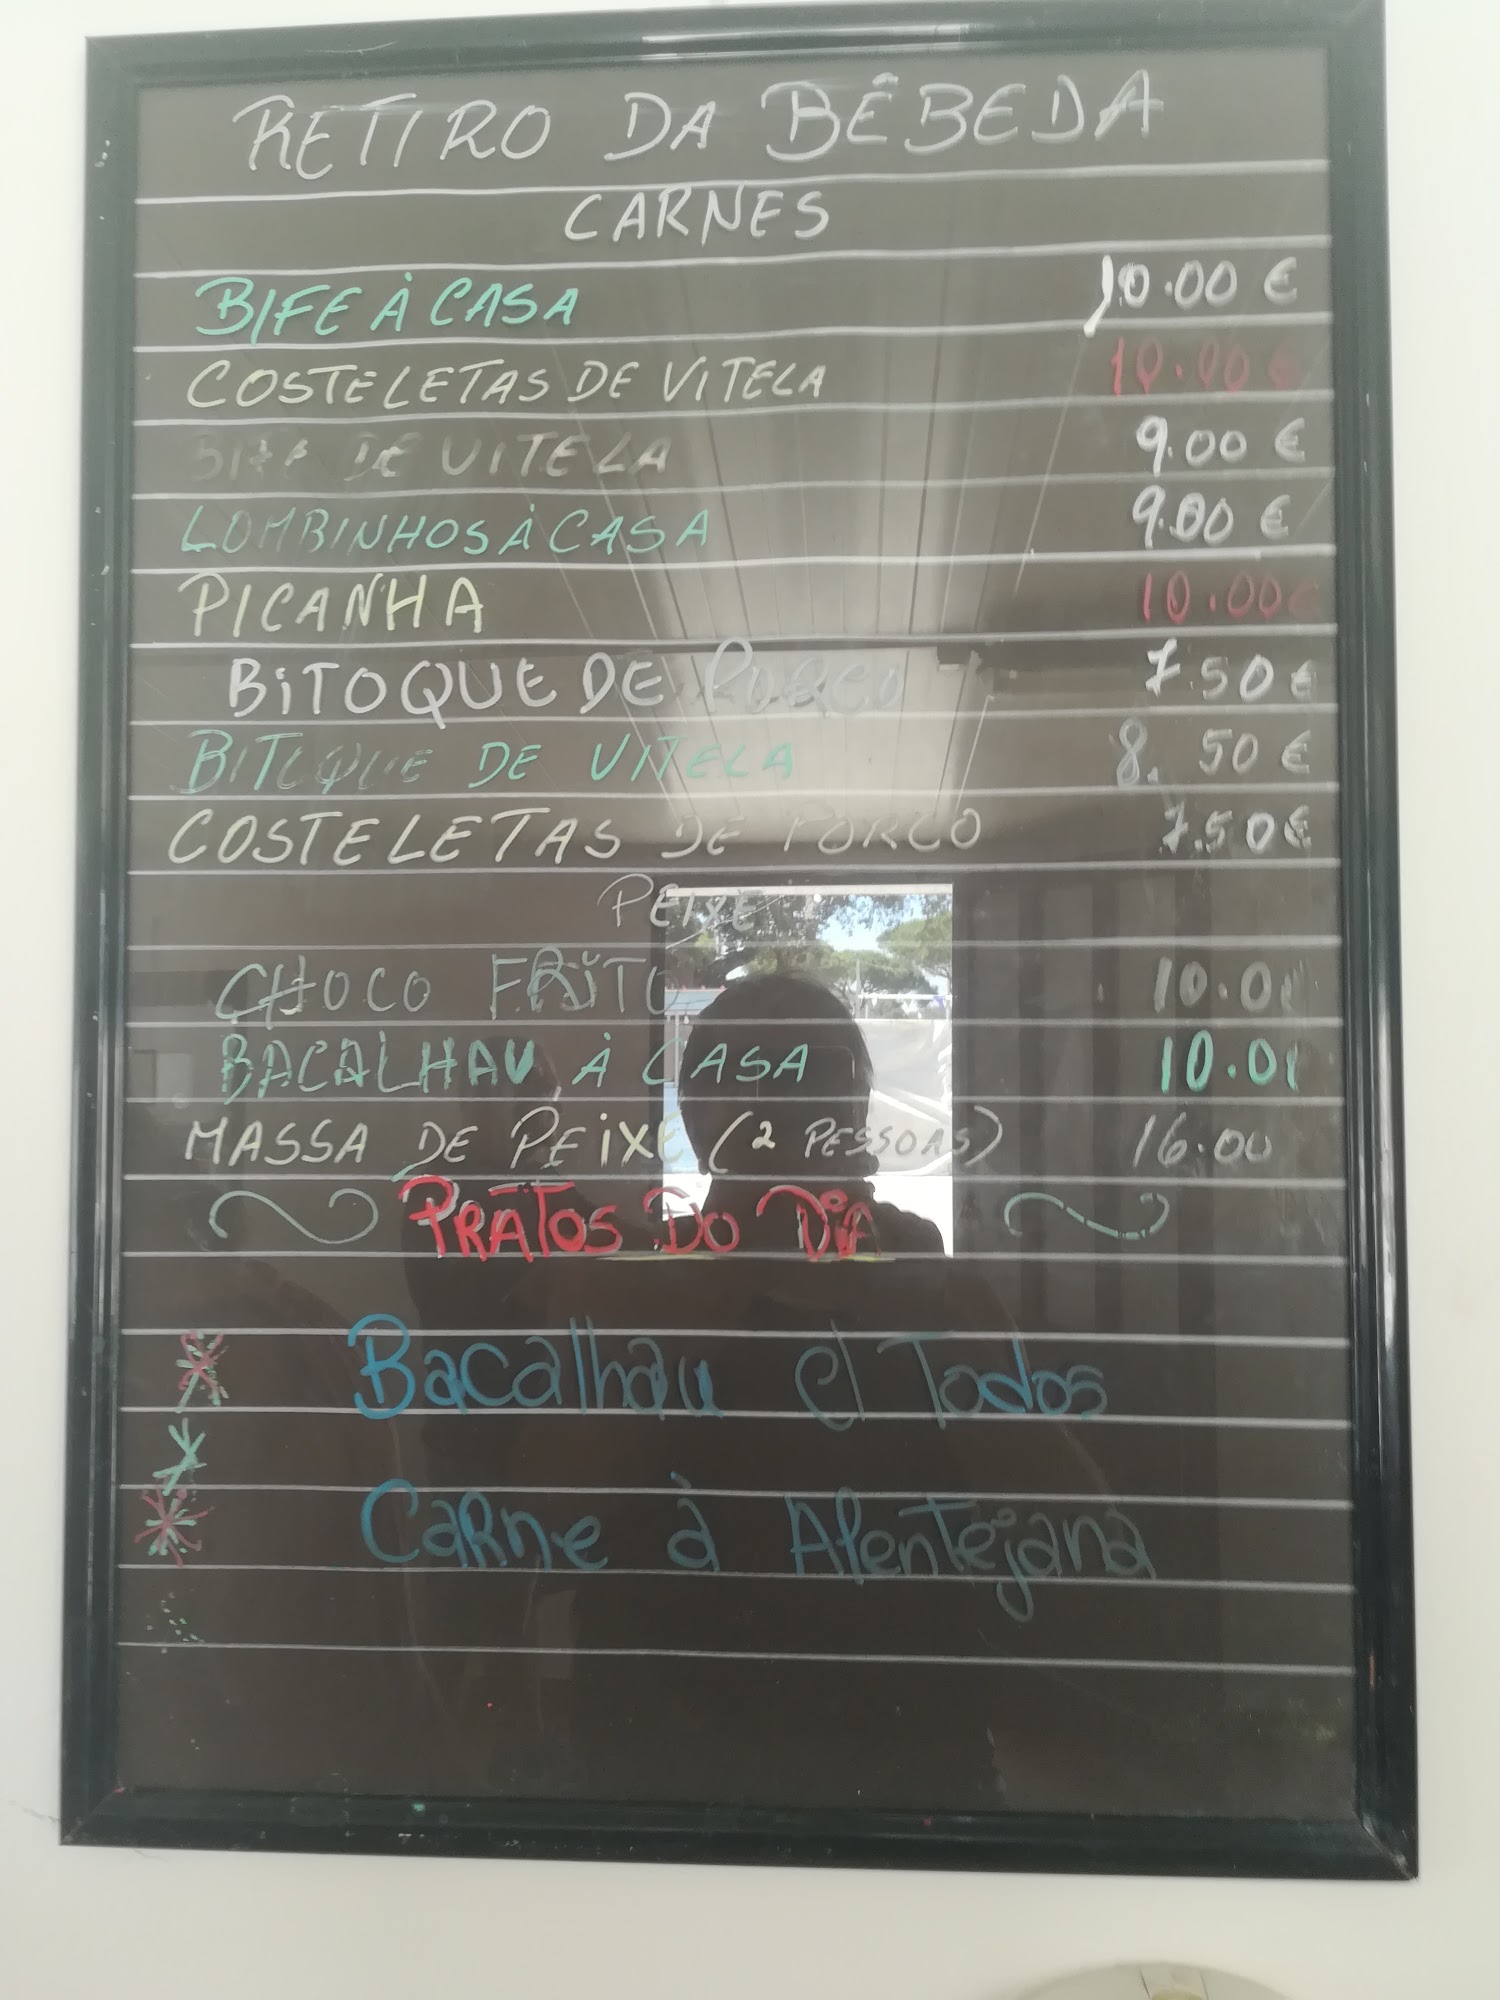 RETIRO DA BÊBEDA
CARNES
BIFE À CASA 10.00 €
COSTELETAS DE VITELA 10.00 €
BIFE DE VITELA 9.00 €
LOMBINHOS À CASA 9.00 €
PICANHA 10.00€
BiTOQUE DE PORCO 7.50€
BITOQUE DE VITELA 8.50€
COSTELETAS DE PORCO 7.50€
PEIXE
CHOCO FRITO 10.00
BACALHAU À CASA 10.00
MASSA DE PEiXE (2 PESSOAS) 16.00
PRATOS DO DiA
Bacalhau c/ Todos
Carne à Alentejana